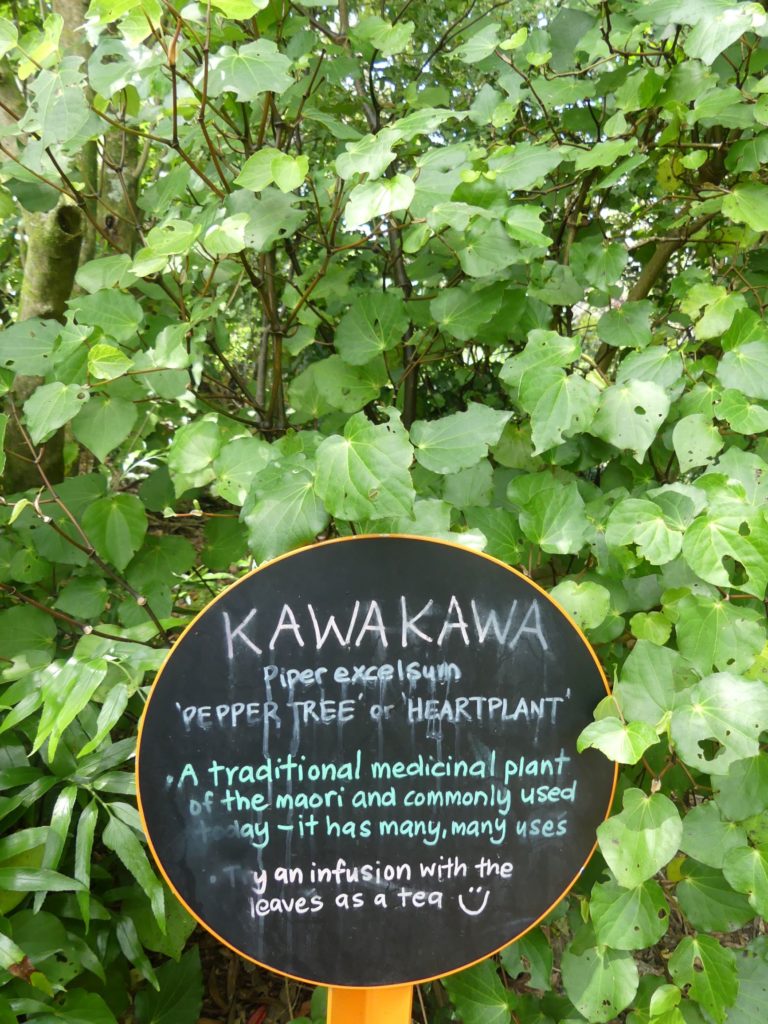 KAWAKAWA
Piper excelsum
'PEPPER TREE' or 'HEARTPLANT'
• A traditional medicinal plant
of the maori and commonly used
today – it has many, many uses
• T y an infusion with the
leaves as a tea